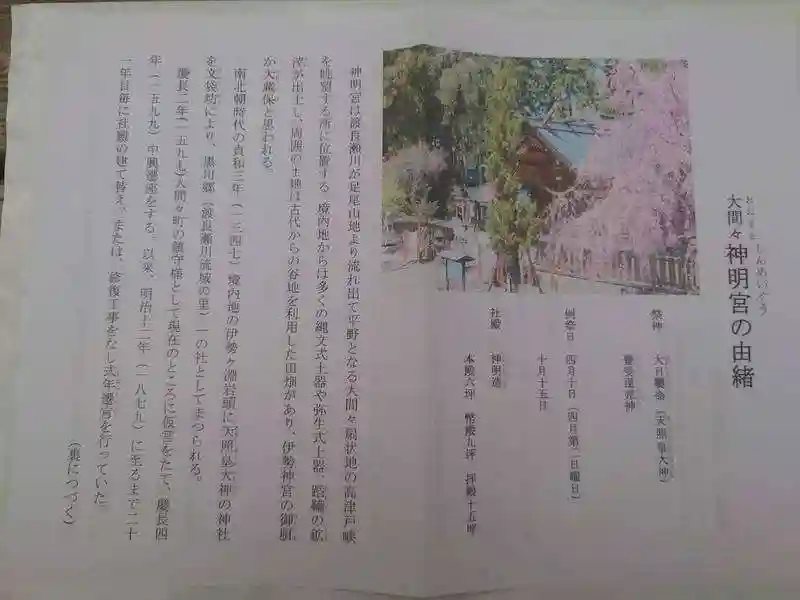 大間々神明宮の由緒
おおまま しんめいぐう
祭神 大日孁命（天照皇大神）
豊受毘売神
例祭日 四月十日（四月第二日曜日）
十月十五日
社殿 神明造
本殿六坪 幣殿九坪 拝殿十五坪
神明宮は渡良瀬川が足尾山地より流れ出て平野となる大間々扇状地の高津戸峡
を眺望する所に位置する。境内地からは多くの縄文式土器や弥生式土器、蹈鞴の鉱
滓が出土し、周囲の土地は古代からの谷地を利用した田畑があり、伊勢神宮の御厨
か大蔵保と思われる。
南北朝時代の貞和三年（一三四七）境内地の伊勢ヶ淵岩頭に天照皇大神の神社
を文袋坊により、黒川郷（渡良瀬川流域の里）一の社としてまつられる。
慶長二年（一五九七）大間々町の鎮守様として現在のところに仮宮をたて、慶長四
年（一五九九）中興遷座をする。以来、明治十二年（一八七九）に至るまで二十
一年目毎に社殿の建て替え、または、修復工事をなし式年遷宮を行っていた。
（裏につづく）